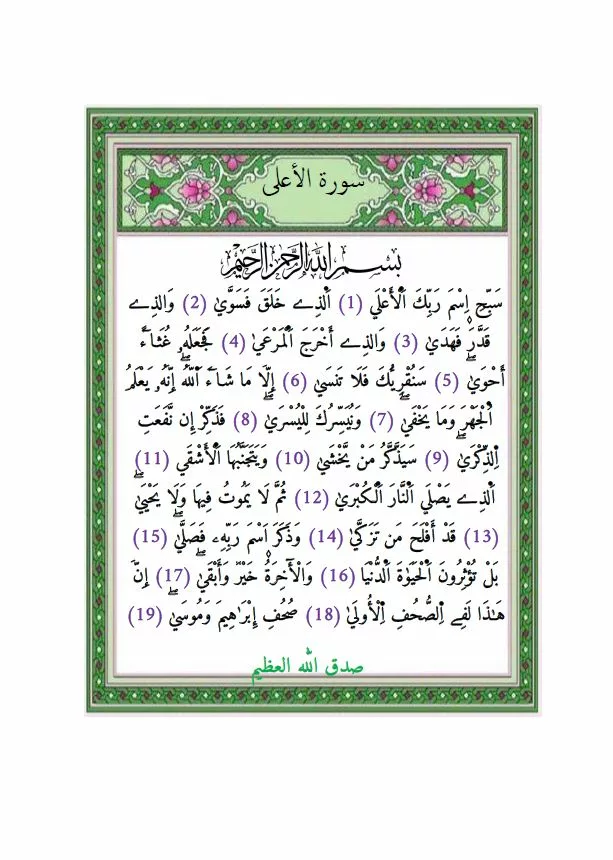 سورة الأعلى
بسم الله الرحمن الرحيم
سَبِّحِ اِسْمَ رَبِّكَ اَ۬لْأَعْلَي (1) اَ۬لذِے خَلَقَ فَسَوَّيٰ (2) وَالذِے
قَدَّرَ فَهَدَيٰ (3) وَالذِے أَخْرَجَ اَ۬لْمَرْعَيٰ (4) فَجَعَلَهُۥ غُثَآءً
أَحْوَيٰۖ (5) سَنُقْرِئُكَ فَلَا تَنسَيٰٓ (6) إِلَّا مَا شَآءَ اَ۬للَّهُۖ إِنَّهُۥ يَعْلَمُ
اُ۬لْجَهْرَ وَمَا يَخْفَيٰۖ (7) وَنُيَسِّرُكَ لِلْيُسْرَيٰۖ (8) فَذَكِّرْ إِن نَّفَعَتِ
اِ۬لذِّكْرَيٰۖ (9) سَيَذَّكَّرُ مَنْ يَّخْشَيٰ (10) وَيَتَجَنَّبُهَا اَ۬لْأَشْقَي (11)
اَ۬لذِے يَصْلَي اَ۬لنَّارَ اَ۬لْكُبْرَيٰ (12) ثُمَّ لَا يَمُوتُ فِيهَا وَلَا يَحْيَيٰۖ
(13) قَدْ أَفْلَحَ مَن تَزَكَّيٰ (14) وَذَكَرَ اَ۪سْمَ رَبِّهِۦ فَصَلَّيٰۖ (15)
بَلْ تُؤْثِرُونَ اَ۬لْحَيَوٰةَ اَ۬لدُّنْيَا (16) وَالْأٓخِرَةُ خَيْرٌ وَأَبْقَيٰٓۖ (17) إِنَّ
هَٰذَا لَفِے اِ۬لصُّحُفِ اِ۬لْأُولَيٰ (18) صُحُفِ إِبْرَٰهِيمَ وَمُوسَيٰۖ (19)
صدق الله العظيم